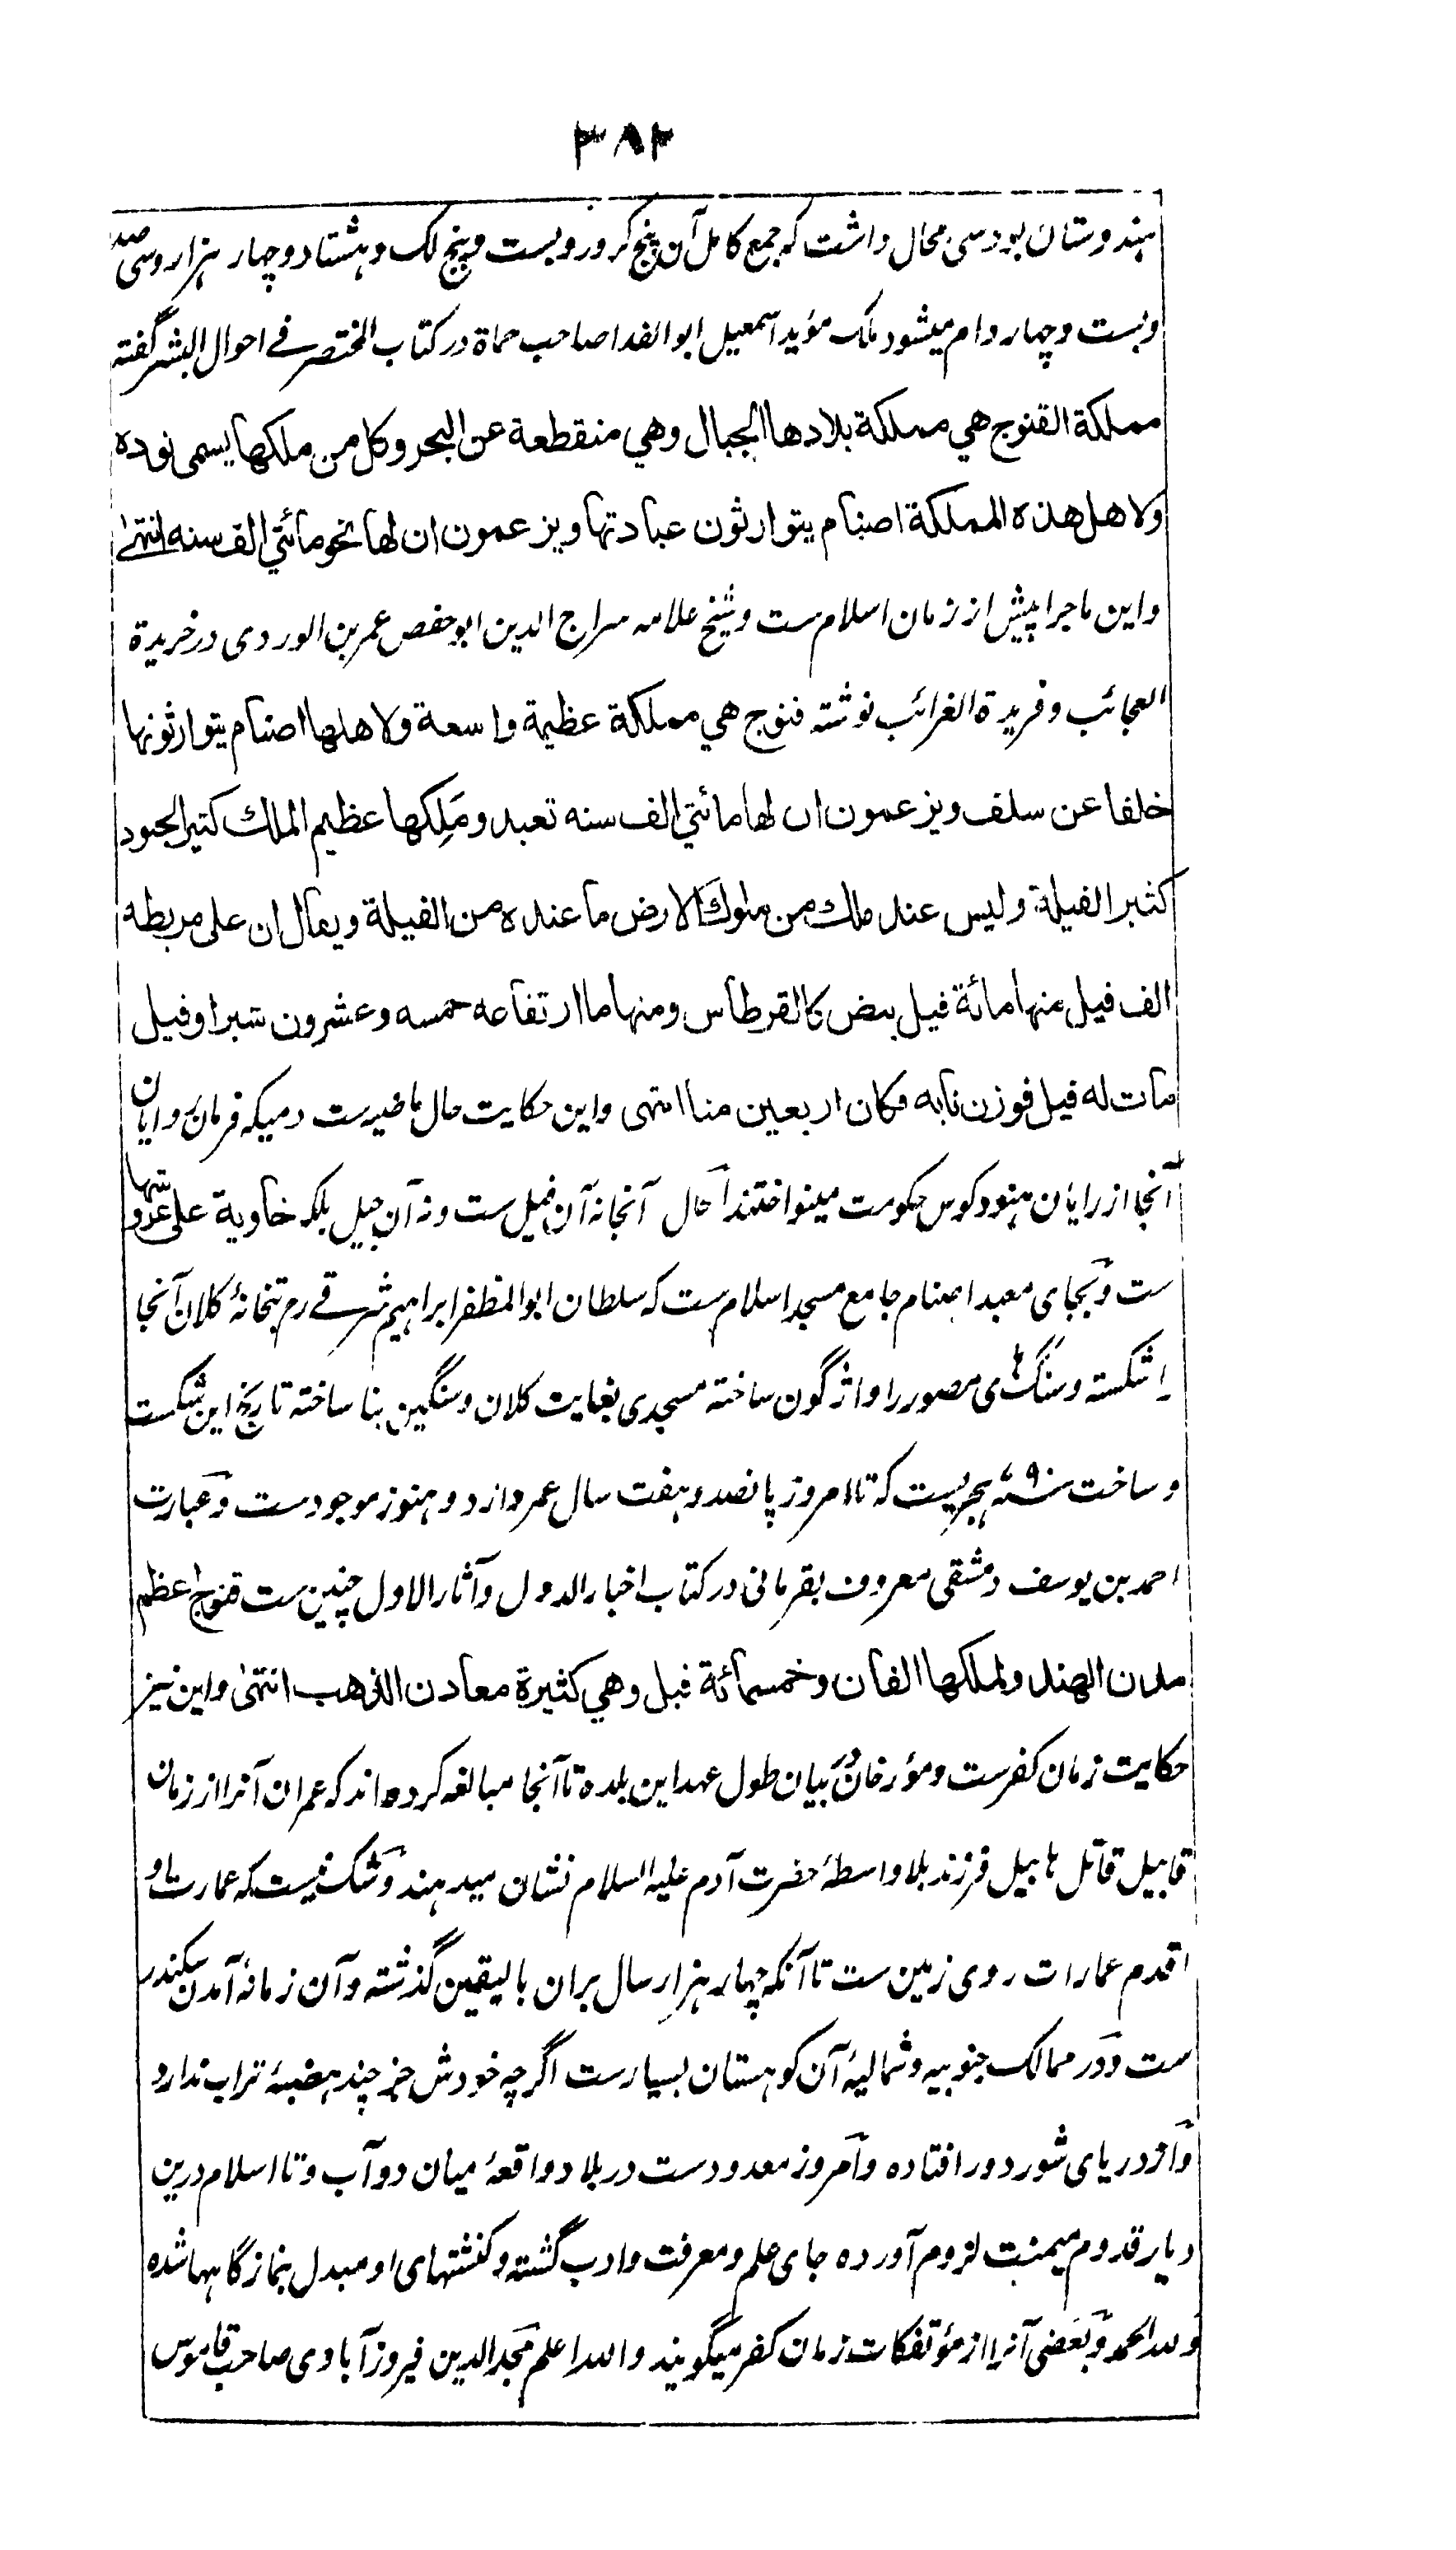 ۳۸۲
هندوستان بود سی محال داشت که جمع کامل آن پنج کرور و بست و پنج لک و هشتاد و چهار هزار و سی صد
و بست و چهار دام میشود ملک مؤید اسمعیل ابو الفدا صاحب حماة در کتاب المختصر فے احوال البشر گفته
مملكة القنوج هي مملكة بلادها الجبال وهي منقطعة عن البحر وكل من ملكها يسمى نوده
ولاهل هذه المملكة اصنام يتوارثون عبادتها ويزعمون ان لها نحو مائتي الف سنه انتهى
و این ماجرا پیش از زمان اسلام ست و شیخ علامه سراج الدین ابو حفص عمر بن الوردی در خریدة
العجائب و فریدة الغرائب نوشته قنوج هي مملكة عظيمة واسعة ولاهلها اصنام يتوارثونها
خلفا عن سلف ويزعمون ان لها مائتي الف سنه تعبد ومَلِكها عظيم الملك كثير الجنود
كثير الفيلة وليس عند ملك من ملوك الارض ما عنده من الفيلة ويقال ان على مربطه
الف فيل منها مائة فيل بيض كالقرطاس ومنها ما ارتفاعه خمسه وعشرون شبرا وفيل
مات له فيل فوزن نابه فكان اربعين منا انتهى و این حکایت حال ماضیه ست دمیکه فرمان روایان
آنجا از رایان هنود کوس حکومت مینواختند احال آنجا نه آن فیل ست و نه آن جبل بلکه خاوية على عروشها
ست و بجای معبد اصنام جامع مسجد اسلام ست که سلطان ابو المظفر ابراهیم شرقے رح بتخانهٔ کلان آنجا
را شکسته و سنگهای مصور را واژگون ساخته مسجدی بغایت کلان و سنگین بنا ساخته تاریخ این شکست
و ساخت سنه هجریست که تا امروز پانصد و هفت سال عمر دارد و هنوز موجود ست و عبارت
احمد بن یوسف دمشقی معروف بقرمانی در کتاب اخبار الدول و آثار الاول چنین ست قنوج اعظم
مدن الهند ولملكها الفان وخمسمائة فيل وهي كثيرة معادن الذهب انتهى و این نیز
حکایت زمان کفر ست و مؤرخان در بیان طول عهد این بلده تا آنجا مبالغه کرده اند که عمران آنرا از زمان
قابیل قاتل هابیل فرزند بلا واسطهٔ حضرت آدم علیه السلام نشان میدهند و شک نیست که عمارت او
اقدم عمارات روی زمین ست تا آنکه چهار هزار سال بران بالیقین گذشته و آن زمانهٔ آمدن سکندر
ست و در ممالک جنوبیه و شمالیهٔ آن کوهستان بسیار ست اگرچه خودش جز چند هضبهٔ تراب ندارد
و از دریای شور دور افتاده و امروز معدود ست در بلاد واقعهٔ میان دوآب و تا اسلام درین
دیار قدوم میمنت لزوم آورده جای علم و معرفت و ادب گشته و کنشتهای او مبدل بنماز گاهها شده
و لله الحمد و بعضی آنرا از مؤتفکات زمان کفر میگویند و الله اعلم مجد الدین فیروزآبادی صاحب قاموس